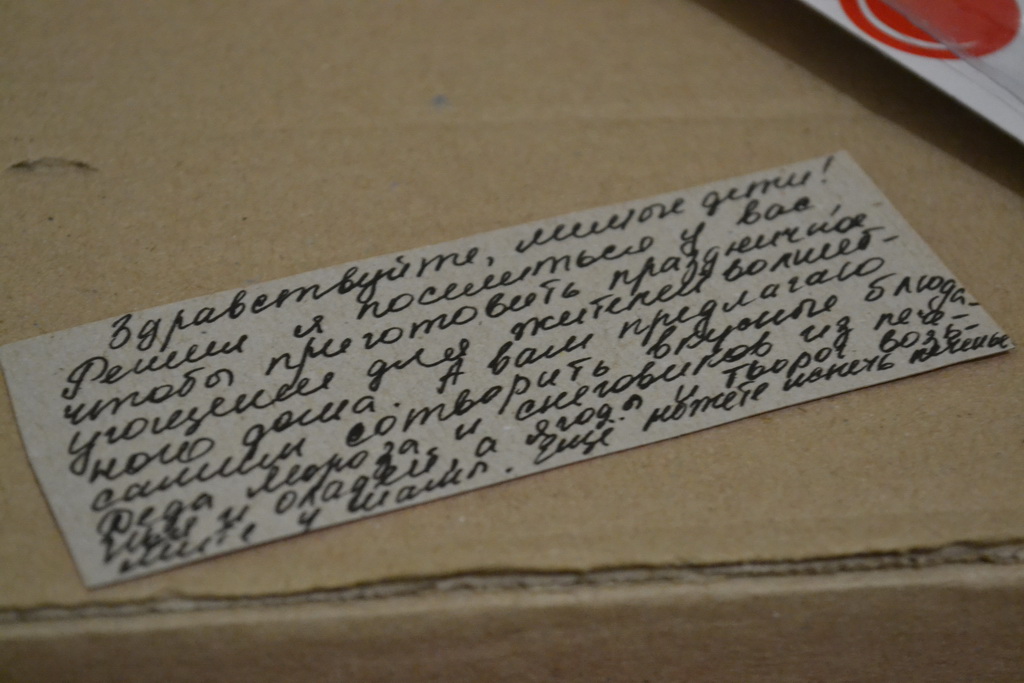 Здравствуйте, милые дети!
Решил я поселиться у вас,
чтобы приготовить праздничное
угощение для жителей волшеб-
ного дома. А вам предлагаю
самим сотворить вкусные блюда -
Деда Мороза и снеговиков из пече-
нья и оладей, а ягоды и творог возь-
мите у мамы. Ещё можете испечь печенье